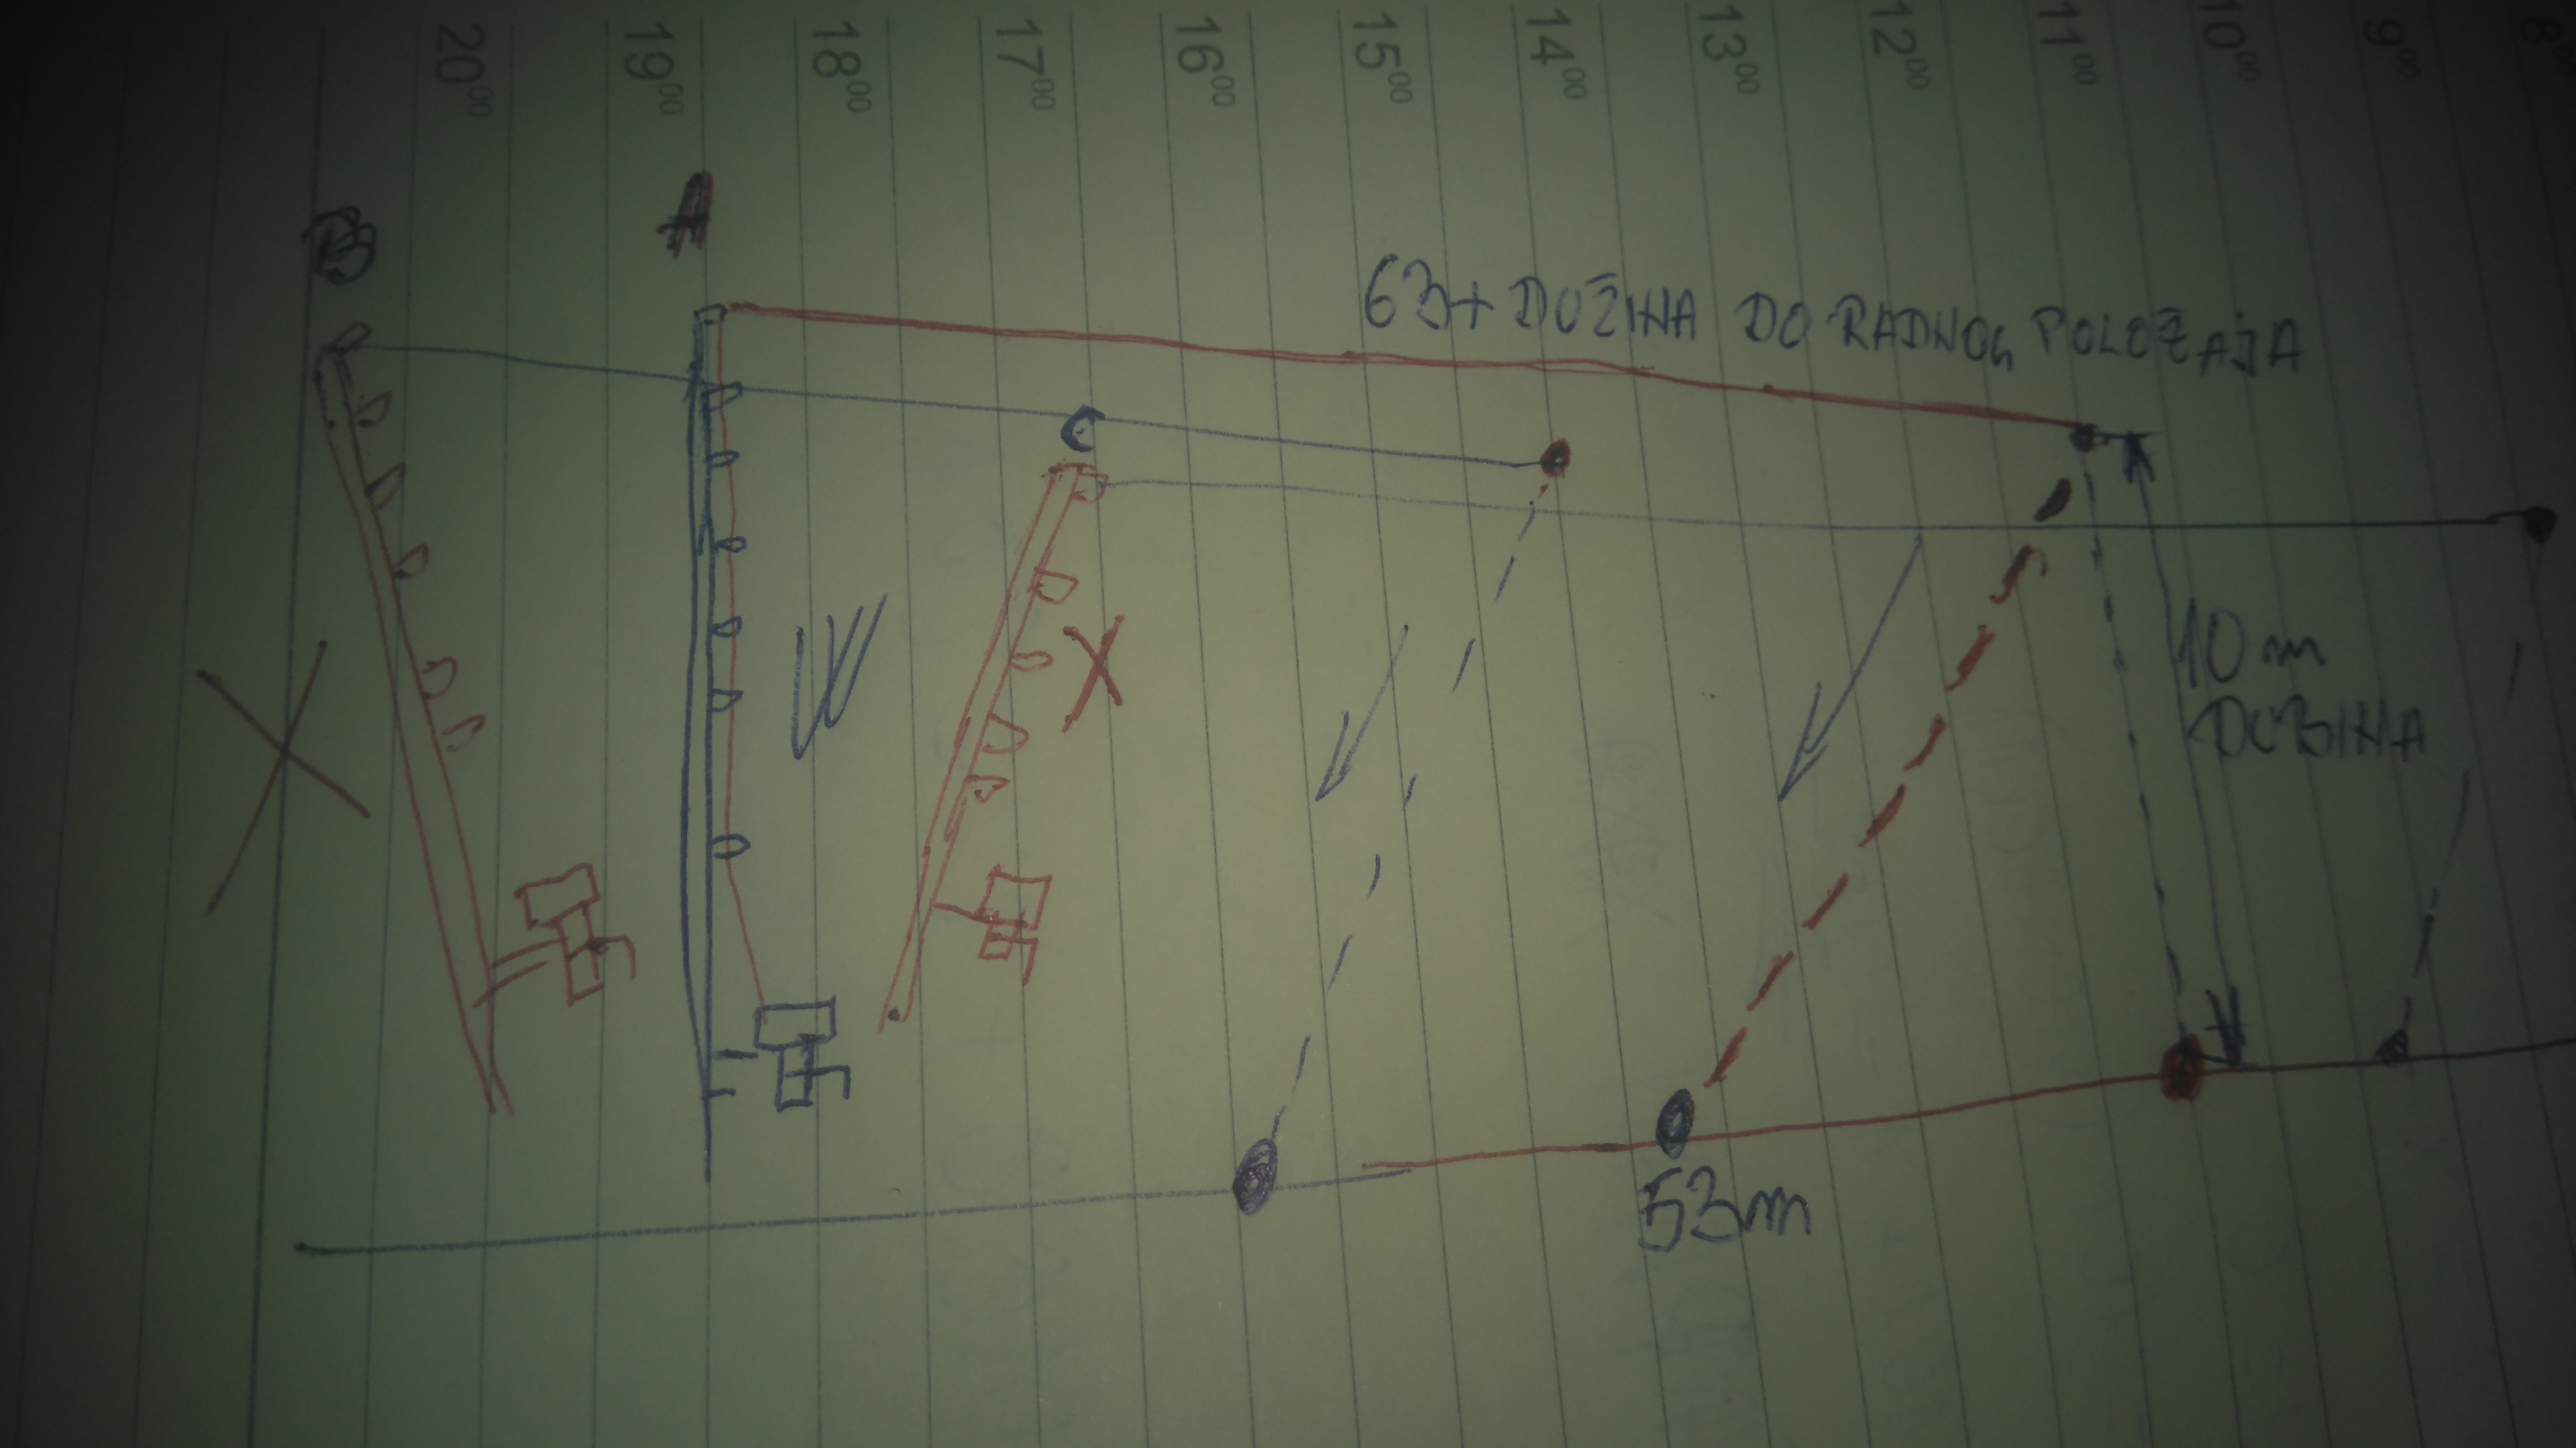 20⁰⁰ 19⁰⁰ 18⁰⁰ 17⁰⁰ 16⁰⁰ 15⁰⁰ 14⁰⁰ 13⁰⁰ 12⁰⁰ 11⁰⁰ 10⁰⁰ 9⁰⁰ 8⁰⁰
B
A
63+ DUŽINA DO RADNOG POLOŽAJA
C
10 m
DUBINA
53m